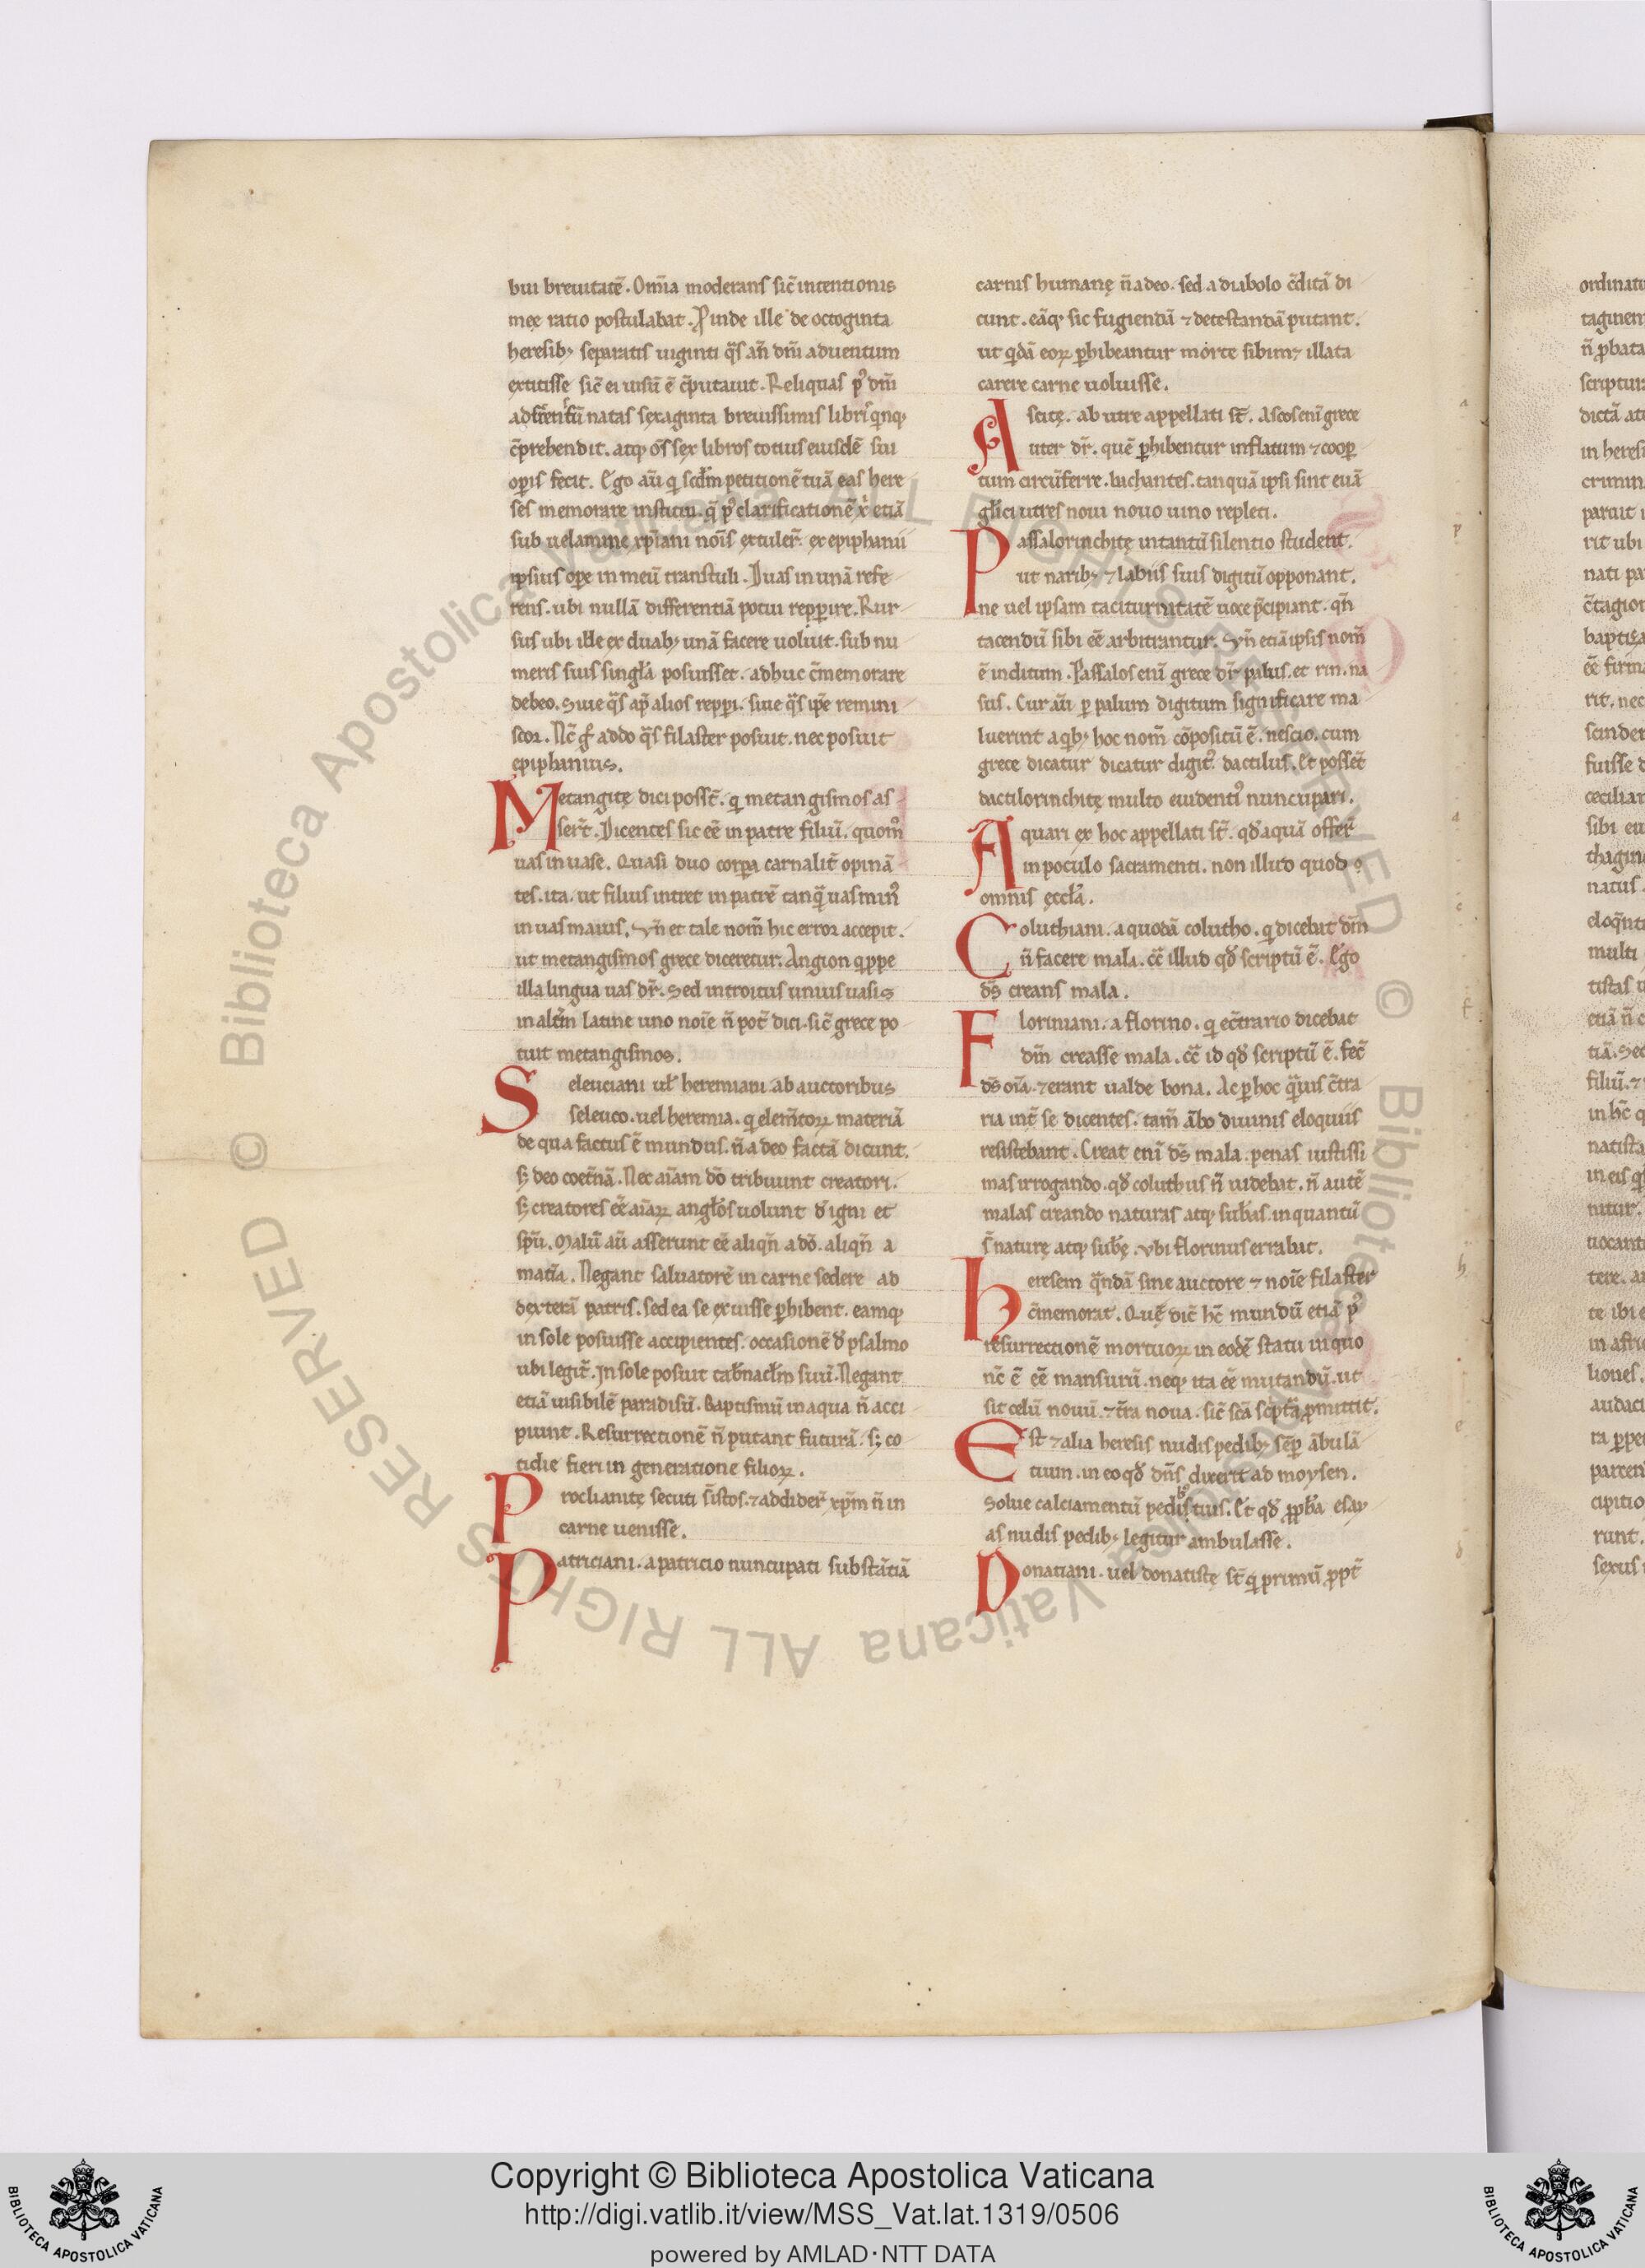 bui breuitatē. Om̄ia moderans sic̄ intentionis
meę ratio postulabat. Proinde ille de octoginta
heresib; separatis uiginti q̄s an̄ dn̄i aduentum
extitisse sic̄ ei uisū ē c̄putauit. Reliquas pꝰ dn̄i
aduentū natas sexaginta breuissimis libris q̄nq;
c̄prehendit. atq; om̄s sex libros totius eiusdē sui
oꝑis fecit. Ego aū qi scd̄m petitionē tuā eas here
ses memorare institui. q̄ pꝰ clarificationē xp̄i etiā
sub uelamine xp̄iani noīs extuler̄. ex epiphanii
ipsius oꝑe in meū transtuli. Duas in unā refe
rens. ubi nullā differentiā potui repꝑire. Rur
sus ubi ille ex duab; unā facere uoluit. sub nu
meris suis singl̄a posuisset. adhuc c̄memorare
debeo. siue q̄s ap̄ alios repꝑi. siue q̄s ip̄e remini
scor. Nc̄ g̊ addo q̄s filaster posuit. nec posuit
epiphanius.
Metangitę dici poss̄t. qi metangismos as
ser̄t. Dicentes sic eē in patre filiū. quom̊
uas in uase. Quasi duo corꝑa carnalit̄ opinā
tes. ita. ut filius intret in patrē tanq̄ uas minꝰ
in uas maius. Vn̄ et tale nom̄ hic error accepit.
ut metangismos grece diceretur. Angion q̄ppe
illa lingua uas dr̄. Sed introitus unius uasis
in alt̄m latine uno noīe n̄ pot̄ dici. sic̄ grece po
tuit metangismos.
Seleuciani ul̄ heremiani. ab auctoribus
seleuco. uel heremia. qi elem̄toꝝ materiā
de qua factus ē mundus. n̄ a deo factā dicunt.
s; deo coet̄nā. Nec aīam dō tribuunt creatori.
s; creatores eē aīaꝝ angl̄os uolunt đ igni et
sp̄u. Malū aū asserunt eē aliqn̄ a dō. aliqn̄ a
mat̄ia. Negant saluatorē in carne sedere ad
dexterā patris. sed ea se exuisse ꝑhibent. eamq;
in sole posuisse accipientes. occasionē đ psalmo
ubi legit̄. In sole posuit tab̄nac̄lm suū. Negant
etiā uisibilē paradisū. Baptismū in aqua n̄ acci
piunt. Resurrectionē n̄ putant futurā. s; co
tidie fieri in generatione filioꝝ.
Proclianitę secuti s̄ istos. ⁊ addider̄ xp̄m n̄ in
carne uenisse.
Patriciani. a patricio nuncupati substātiā
carnis humanę n̄ a deo. sed a diabolo c̄ditā di
cunt. eāq; sic fugiendā ⁊ detestandā putant.
ut qidā eoꝝ ꝑhibeantur morte sibimet illata
carere carne uoluisse.
Ascitę. ab utre appellati st̄. Ascos enī grece
uter dr̄. quē ꝑhibentur inflatum ⁊ cooꝑ
tum circūferre. bachantes. tanquā ipsi sint euā
gl̄ici utres noui nouo uino repleti.
Passalorinchitę intantū silentio student.
ut narib; ⁊ labiis suis digitū opponant.
ne uel ipsam taciturnitatē uoce p̄cipiant. qn̄
tacendū sibi eē arbitrantur. Vn̄ etiā ipsis nom̄
ē inditum. Passalos enī grece dr̄ palus. et rin. na
sus. Cur aū ꝑ palum digitum significare ma
luerint a qib; hoc nom̄ cōpositū ē. nescio. cum
grece dicatur dicatur digitꝰ dactilus. Et possēt
dactilorinchitę multo euidentiꝰ nuncupari.
Aquari ex hoc appellati st̄. qđ aquā offer̄
in poculo sacramenti. non illud quod
omnis ęccl̄a.
Coluthiani. a quodā colutho. qi dicebat dm̄
n̄ facere mala. cc̄ illud qđ scriptū ē. Ego
ds̄ creans mala.
Floriniani. a florino. qi ec̄trario dicebat
dm̄ creasse mala. cc̄ id qđ scriptū ē. fec̄
ds̄ oīa. ⁊ erant ualde bona. Ac ꝑ hoc q̄uis c̄tra
ria int̄ se dicentes. tam̄ ābo diuinis eloquiis
resistebant. Creat enī ds̄ mala. penas iustissi
mas irrogando. qđ coluthus n̄ uidebat. n̄ autē
malas creando naturas atq; sub̄as. inquantū
s̄ naturę atq; sub̄ę. Vbi florinus errabat.
Heresem q̄ndā sine auctore ⁊ noīe filaster
c̄memorat. Quę dic̄ hc̄ mundū etiā pꝰ
resurrectionē mortuoꝝ in eodē statu in quo
nc̄ ē eē mansurū. neq; ita eē mutandū. ut
sit celū nouū. ⁊ t̄ra noua. sic̄ sc̄a sc̄pt̄a ꝓmittit.
Est ⁊ alia heresis nudis pedib; sēꝑ ābulā
tium. in eo qđ dn̄s dixerit ad moysen.
Solue calciamentū pedib; tuis. Et qđ ꝓꝑha esay
as nudis pedib; legitur ambulasse.
Donatiani. uel donatistę st̄ qi primū ꝓpt̄
Copyright © Biblioteca Apostolica Vaticana
http://digi.vatlib.it/view/MSS_Vat.lat.1319/0506
powered by AMLAD·NTT DATA